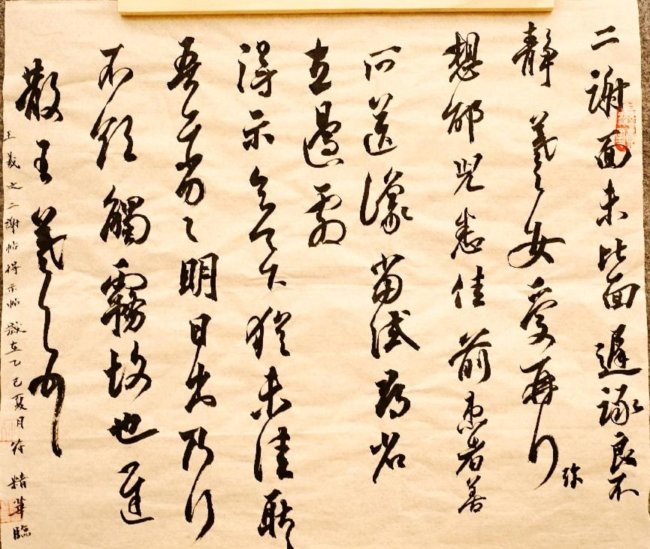 二謝面未比面遲詠良不
靜羲之女愛再拜
想邰兒悉佳前患者善
所送議當試尋省
左邊劇
得示知足下猶未佳耿々
吾亦劣々明日出乃行
不欲觸霧故也遲
散王羲之頓首
王羲之二謝帖得示帖歲在乙巳夏月精華臨